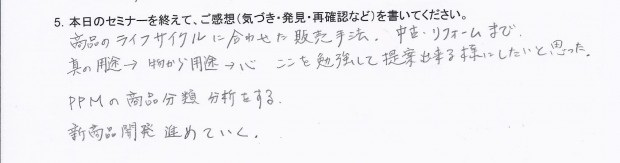 5. 本日のセミナーを終えて、ご感想（気づき・発見・再確認など）を書いてください。
商品のライフサイクルに合わせた販売手法. 中古・リフォームまで.
真の用途→物から用途→心 ここを勉強して提案出来る様にしたいと思った.
PPMの商品分類 分析をする.
新商品開発 進めていく.